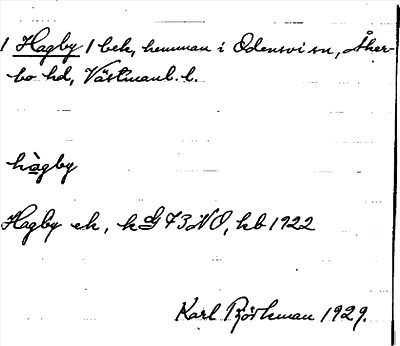 1 Hagby 1 bek, hemman i Odensvi sn, Åker-
bo hd, Västmanl. l.
hàgby
Hagby ek, kG 73 NO, hb 1922
Karl Björkman 1929.